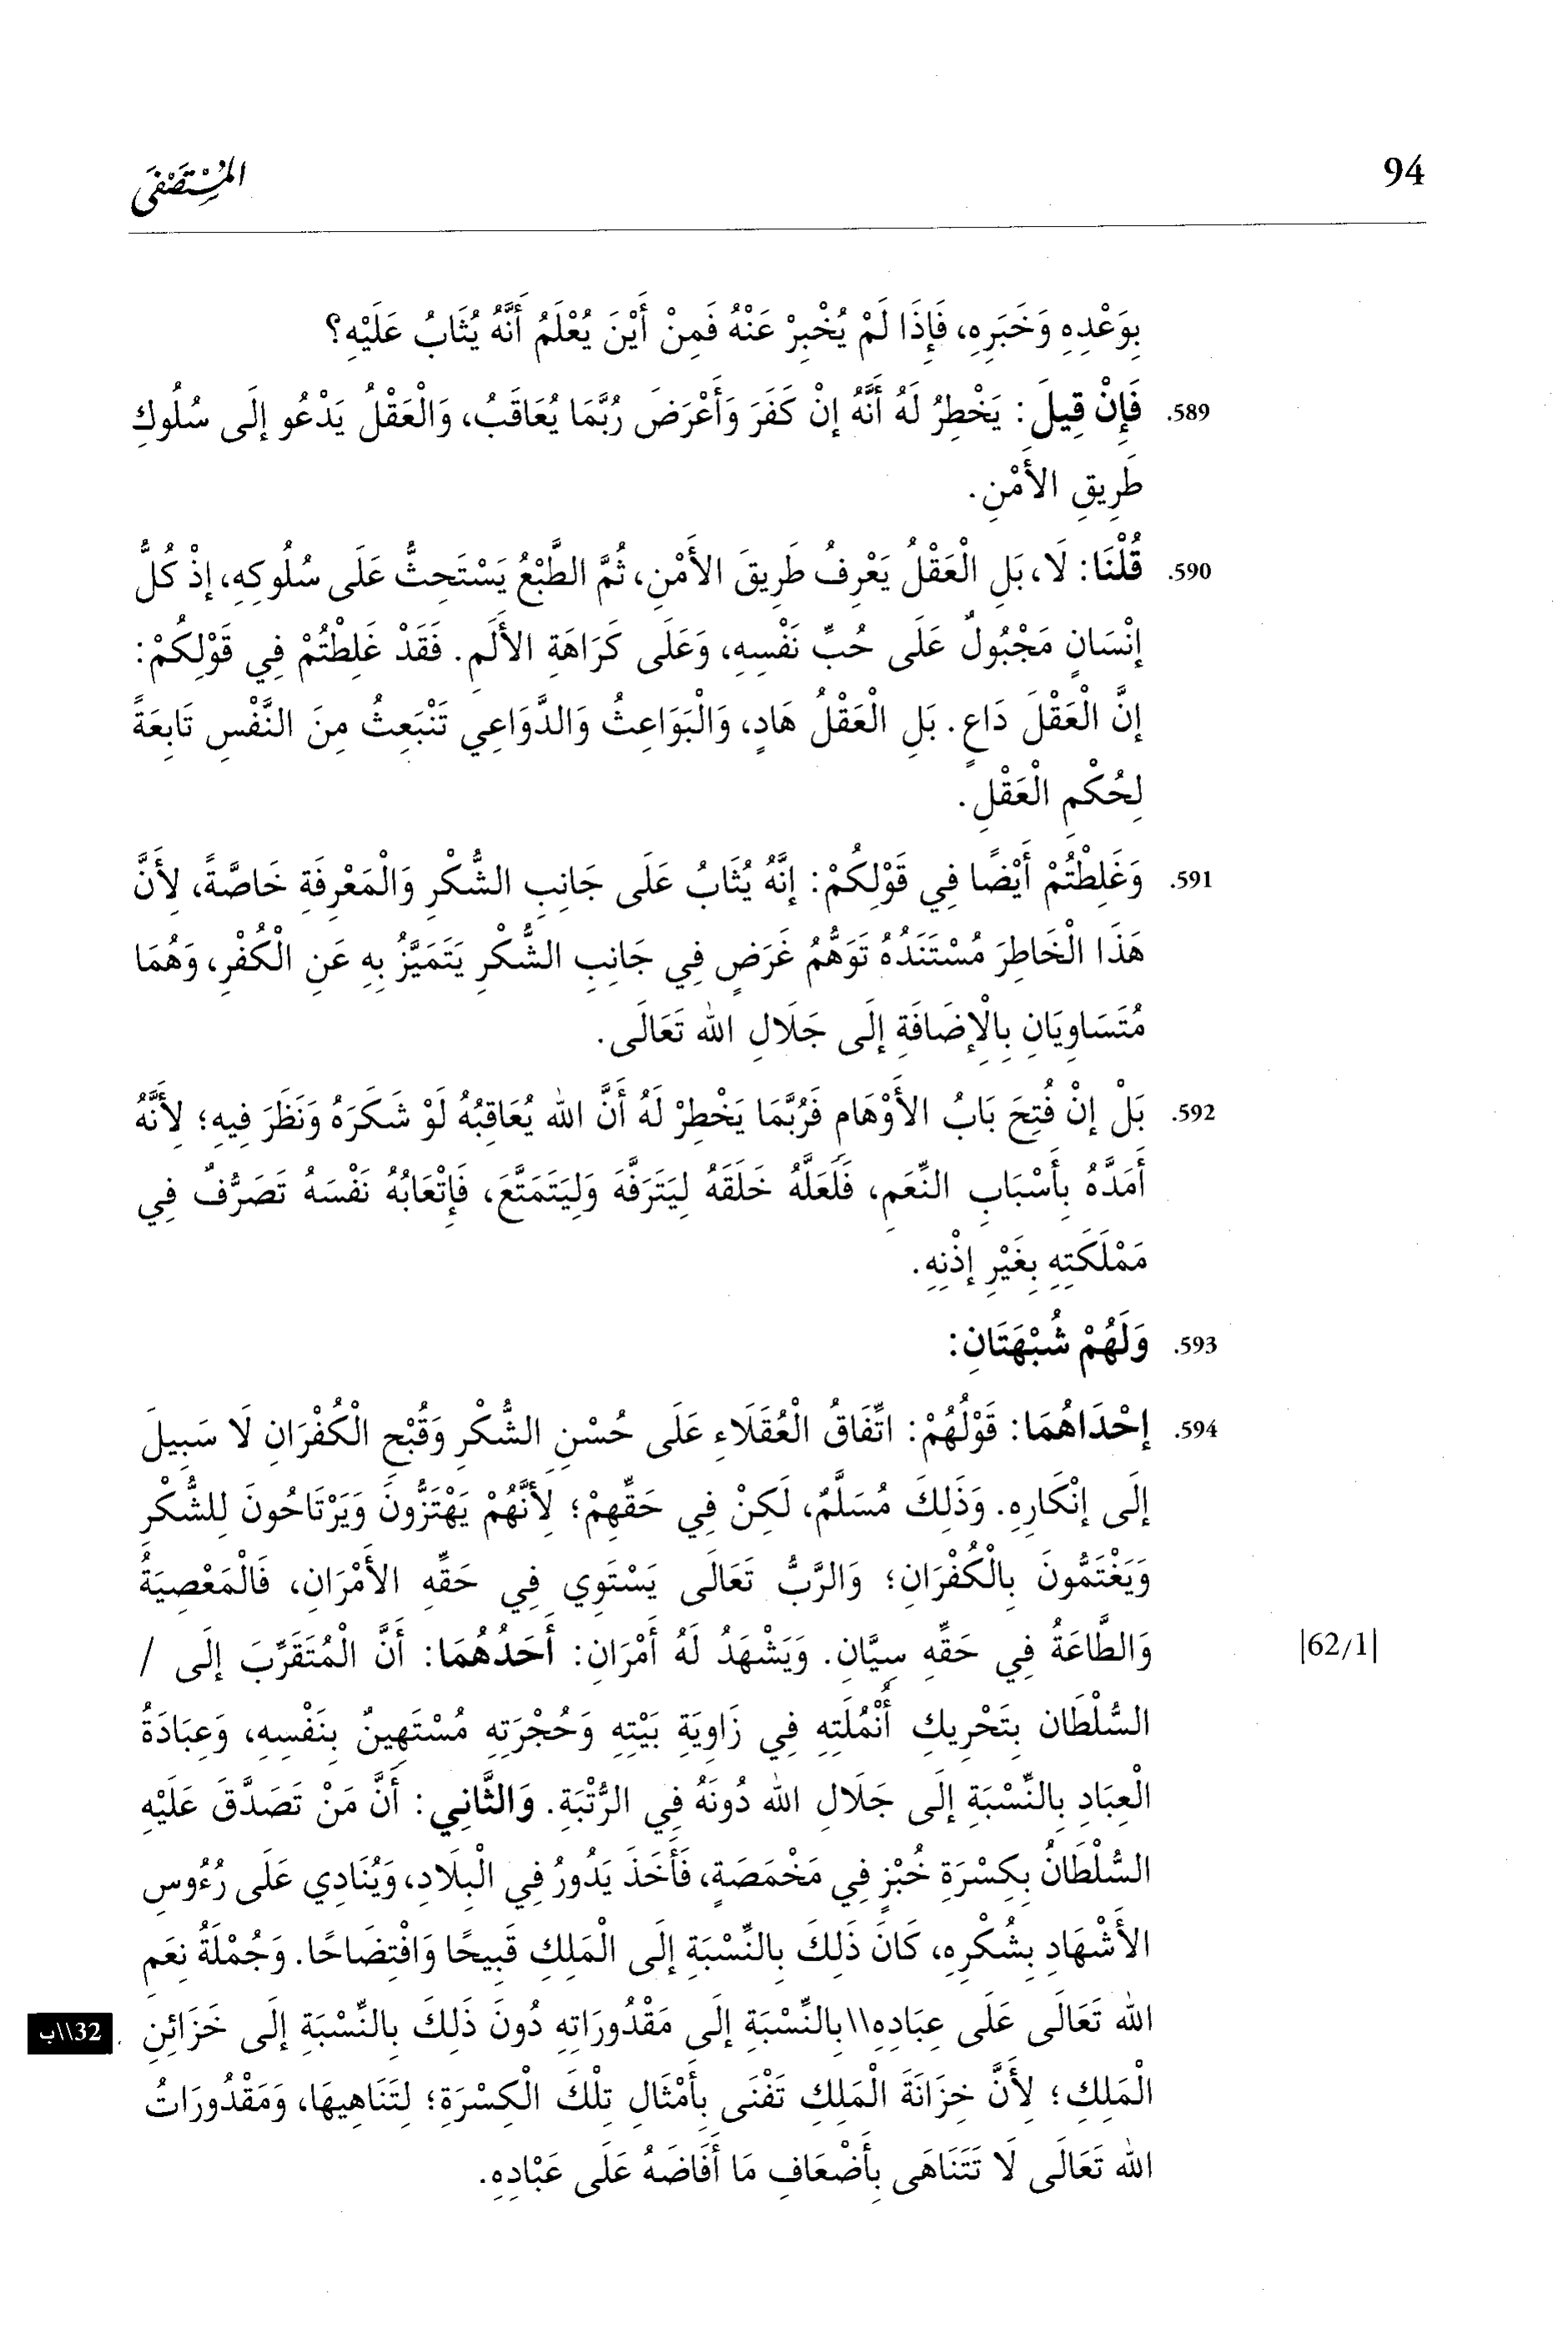 94
المُسْتَصْفَى
بِوَعْدِهِ وَخَبَرِهِ، فَإِذَا لَمْ يُخْبِرْ عَنْهُ فَمِنْ أَيْنَ يُعْلَمُ أَنَّهُ يُثَابُ عَلَيْهِ؟
589. فَإِنْ قِيلَ: يَخْطِرُ لَهُ أَنَّهُ إِنْ كَفَرَ وَأَعْرَضَ رُبَّمَا يُعَاقَبُ، وَالْعَقْلُ يَدْعُو إِلَى سُلُوكِ
طَرِيقِ الأَمْنِ.
590. قُلْنَا: لَا، بَلِ الْعَقْلُ يَعْرِفُ طَرِيقَ الأَمْنِ، ثُمَّ الطَّبْعُ يَسْتَحِثُّ عَلَى سُلُوكِهِ، إِذْ كُلُّ
إِنْسَانٍ مَجْبُولٌ عَلَى حُبِّ نَفْسِهِ، وَعَلَى كَرَاهَةِ الأَلَمِ. فَقَدْ غَلِطْتُمْ فِي قَوْلِكُمْ:
إِنَّ الْعَقْلَ دَاعٍ. بَلِ الْعَقْلُ هَادٍ، وَالْبَوَاعِثُ وَالدَّوَاعِي تَنْبَعِثُ مِنَ النَّفْسِ تَابِعَةً
لِحُكْمِ الْعَقْلِ.
591. وَغَلِطْتُمْ أَيْضًا فِي قَوْلِكُمْ: إِنَّهُ يُثَابُ عَلَى جَانِبِ الشُّكْرِ وَالْمَعْرِفَةِ خَاصَّةً، لِأَنَّ
هَذَا الْخَاطِرَ مُسْتَنَدُهُ تَوَهُّمُ غَرَضٍ فِي جَانِبِ الشُّكْرِ يَتَمَيَّزُ بِهِ عَنِ الْكُفْرِ، وَهُمَا
مُتَسَاوِيَانِ بِالْإِضَافَةِ إِلَى جَلَالِ الله تَعَالَى.
592. بَلْ إِنْ فُتِحَ بَابُ الأَوْهَامِ فَرُبَّمَا يَخْطِرْ لَهُ أَنَّ الله يُعَاقِبُهُ لَوْ شَكَرَهُ وَنَظَرَ فِيهِ؛ لِأَنَّهُ
أَمَدَّهُ بِأَسْبَابِ النِّعَمِ، فَلَعَلَّهُ خَلَقَهُ لِيَتَرَفَّهَ وَلِيَتَمَتَّعَ، فَإِتْعَابُهُ نَفْسَهُ تَصَرُّفٌ فِي
مَمْلَكَتِهِ بِغَيْرِ إِذْنِهِ.
593. وَلَهُمْ شُبْهَتَانِ:
594. إِحْدَاهُمَا: قَوْلُهُمْ: اتِّفَاقُ الْعُقَلَاءِ عَلَى حُسْنِ الشُّكْرِ وَقُبْحِ الْكُفْرَانِ لَا سَبِيلَ
إِلَى إِنْكَارِهِ. وَذَلِكَ مُسَلَّمٌ، لَكِنْ فِي حَقِّهِمْ؛ لِأَنَّهُمْ يَهْتَزُّونَ وَيَرْتَاحُونَ لِلشُّكْرِ
وَيَغْتَمُّونَ بِالْكُفْرَانِ؛ وَالرَّبُّ تَعَالَى يَسْتَوِي فِي حَقِّهِ الأَمْرَانِ، فَالْمَعْصِيَةُ
وَالطَّاعَةُ فِي حَقِّهِ سِيَّانِ. وَيَشْهَدُ لَهُ أَمْرَانِ: أَحَدُهُمَا: أَنَّ الْمُتَقَرِّبَ إِلَى /
|62/1|
السُّلْطَان بِتَحْرِيكِ أُنْمُلَتِهِ فِي زَاوِيَةِ بَيْتِهِ وَحُجْرَتِهِ مُسْتَهِينٌ بِنَفْسِهِ، وَعِبَادَةُ
الْعِبَادِ بِالنِّسْبَةِ إِلَى جَلَالِ الله دُونَهُ فِي الرُّتْبَةِ. وَالثَّانِي: أَنَّ مَنْ تَصَدَّقَ عَلَيْهِ
السُّلْطَانُ بِكِسْرَةِ خُبْزٍ فِي مَخْمَصَةٍ، فَأَخَذَ يَدُورُ فِي الْبِلَادِ، وَيُنَادِي عَلَى رُءُوسِ
الأَشْهَادِ بِشُكْرِهِ، كَانَ ذَلِكَ بِالنِّسْبَةِ إِلَى الْمَلِكِ قَبِيحًا وَافْتِضَاحًا. وَجُمْلَةُ نِعَمِ
الله تَعَالَى عَلَى عِبَادِهِ\\بِالنِّسْبَةِ إِلَى مَقْدُورَاتِهِ دُونَ ذَلِكَ بِالنِّسْبَةِ إِلَى خَزَائِنِ
32\\ب
الْمَلِكِ؛ لِأَنَّ خِزَانَةَ الْمَلِكِ تَفْنَى بِأَمْثَالِ تِلْكَ الْكِسْرَةِ؛ لِتَنَاهِيهَا، وَمَقْدُورَاتُ
الله تَعَالَى لَا تَتَنَاهَى بِأَضْعَافِ مَا أَفَاضَهُ عَلَى عَبْادِهِ.